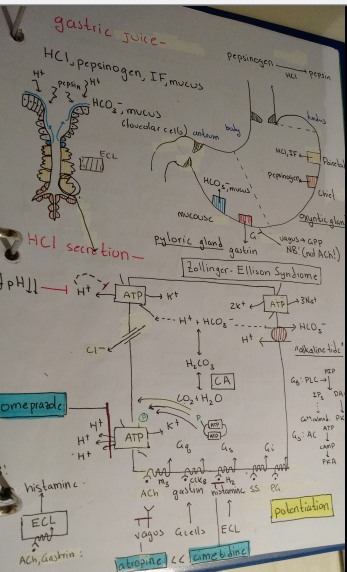 gastric juice-
HCl, pepsinogen, IF, mucus
pepsinogen → pepsin
HCl
H⁺
pepsin
H⁺
HCO₃⁻, mucus
(foveolar cells)
antrum
body
fundus
ECL
HCl, IF
Parietal
pepsinogen
Chief
HCO₃⁻, mucus
mucouse
oxyntic gland
pyloric gland
gastrin
G
vagus → GPP
NB: (not ACh!)
HCl secretion-
Zollinger-Ellison Syndrome
↑pH↓↓
H⁺
ATP
K⁺
2K⁺
ATP
3Na⁺
H⁺ + HCO₃⁻
HCO₃⁻
H⁺
"alkaline tide"
Cl⁻
H₂CO₃
CA
CO₂ + H₂O
Gq: PLC
PIP
IP₃
DA
PK
Gs: AC
ATP
cAMP
PKA
omeprazole
H⁺
H⁺
H⁺
ATP
K⁺
P
ATP
ATP
Gq
Gs
Gi
M₃
CCKB
H₂
ACh
gastrin
histamine
SS
PG
histamine
ECL
ACh, Gastrin:
vagus
G cells
ECL
potentiation
atropine << cimetidine